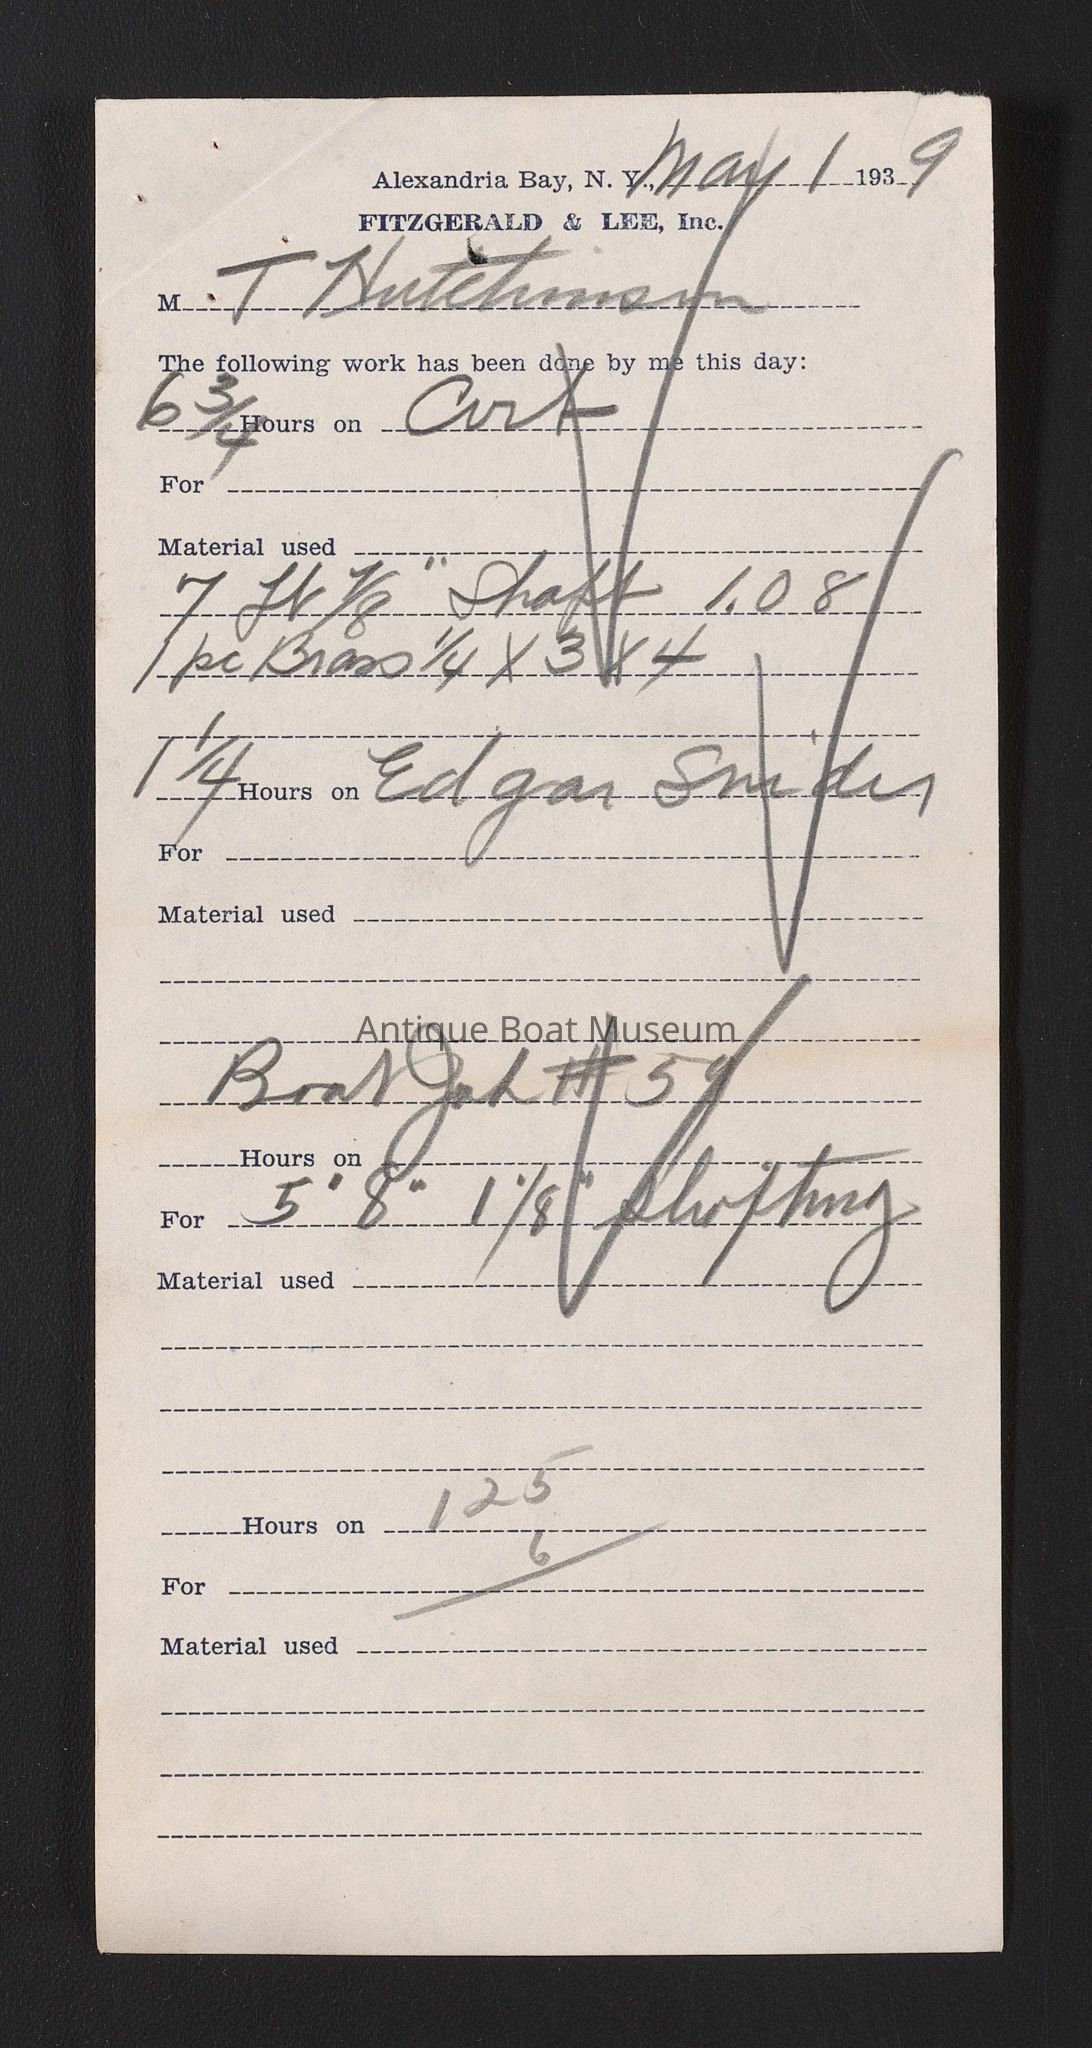 Alexandria Bay, N. Y., May 1 1939
FITZGERALD & LEE, Inc.
M T Hutchinson
The following work has been done by me this day:
6 3/4 Hours on
For
Material used
7 ft 7/8" Shaft 1.08
1 pc Brass 1/4 X 3 X 4
1 1/4 Hours on Edgar Snider
For
Material used
Antique Boat Museum
Boat Job # 59
Hours on
For 5' 8" 1 1/8" Shafting
Material used
125
Hours on
6
For
Material used